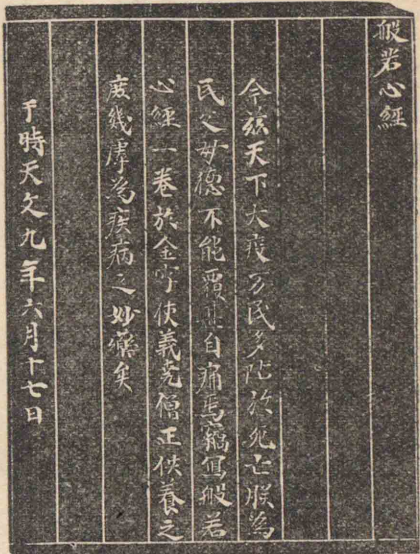 般若心經
今玆天下大疫万民多阽於死亡朕為
民父母德不能覆甚自痛焉竊寫般若
心經一卷於金字使義堯僧正供養之
庶幾虖為疾病之妙藥矣
于時天文九年六月十七日